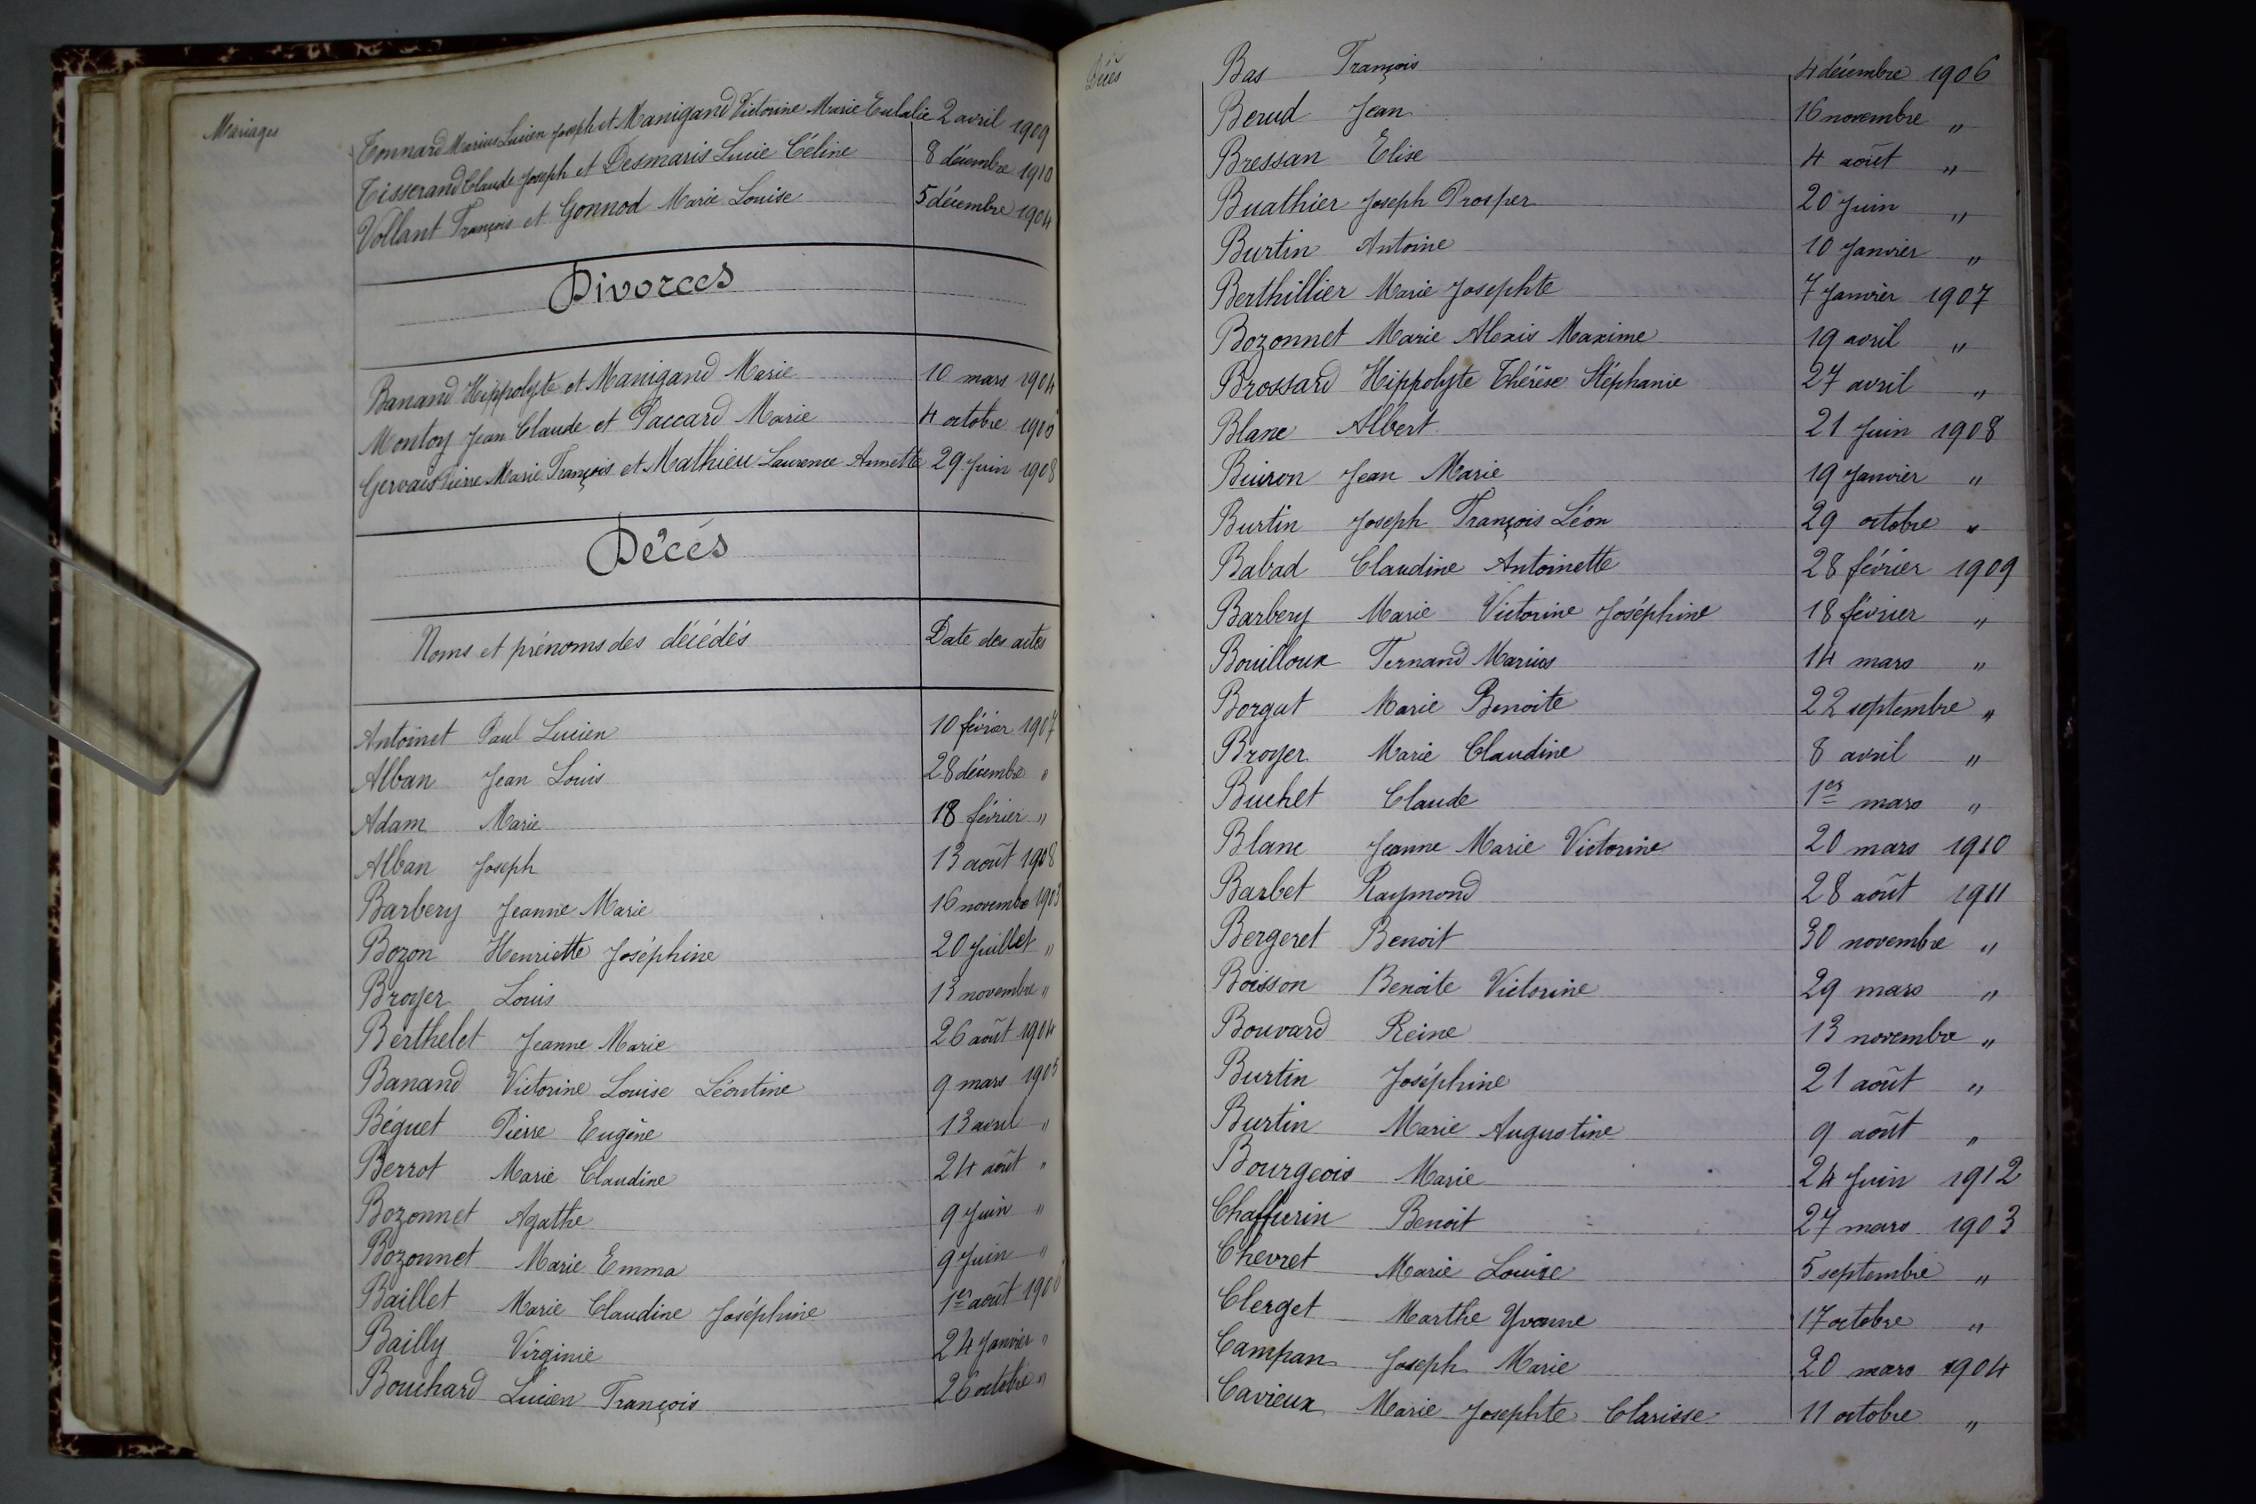 Mariages
Tonnard Marius Lucien Joseph et Manigand Victorine Marie Eulalie 2 avril 1909
Tisserand Claude Joseph et Desmaris Lucie Céline 8 décembre 1910
Vollant François et Gonnod Marie Louise 5 décembre 1904
Divorces
Banand Hippolyte et Manigand Marie 10 mars 1904
Montoy Jean Claude et Paccard Marie 4 octobre 1906
Gervais Pierre Marie François et Mathieu Laurence Annette 29 Juin 1908
Décès
Noms et prénoms des décédés Date des actes
Antoinet Paul Lucien 10 février 1907
Alban Jean Louis 28 décembre "
Adam Marie 18 février "
Alban Joseph 13 août 1908
Barbery Jeanne Marie 16 novembre 1903
Bozon Henriette Joséphine 20 Juillet "
Broyer Louis 13 novembre "
Berthelet Jeanne Marie 26 août 1904
Banand Victorine Louise Léontine 9 mars 1905
Béguet Pierre Eugène 13 avril "
Berrot Marie Claudine 24 août "
Bozonnet Agathe 9 Juin "
Bozonnet Marie Emma 9 Juin "
Baillet Marie Claudine Joséphine 1er août 1906
Bailly Virginie 24 Janvier "
Bouchard Lucien François 26 octobre "
Décès
Bas François 4 décembre 1906
Berud Jean 16 novembre "
Bressan Elise 4 août "
Buathier Joseph Prosper 20 Juin "
Burtin Antoine 10 Janvier "
Berthillier Marie Josephte 7 Janvier 1907
Bozonnet Marie Alexis Maxime 19 avril "
Brossard Hippolyte Thérèse Stéphanie 27 avril "
Blanc Albert 21 Juin 1908
Buiron Jean Marie 19 Janvier "
Burtin Joseph François Léon 29 octobre "
Babad Claudine Antoinette 28 février 1909
Barbery Marie Victorine Joséphine 18 février "
Bouilloux Fernand Marius 14 mars "
Borgat Marie Benoite 22 septembre "
Broyer Marie Claudine 8 avril "
Buchet Claude 1er mars "
Blanc Jeanne Marie Victorine 20 mars 1910
Barbet Raymond 28 août 1911
Bergeret Benoit 30 novembre "
Boisson Benoite Victorine 29 mars "
Bouvard Reine 13 novembre "
Burtin Joséphine 21 août "
Burtin Marie Augustine 9 août "
Bourgeois Marie 24 Juin 1912
Chaffurin Benoit 27 mars 1903
Chevret Marie Louise 5 septembre "
Clerget Marthe Yvonne 17 octobre "
Campan Joseph Marie 20 mars 1904
Cavieux Marie Josephte Clarisse 11 octobre "